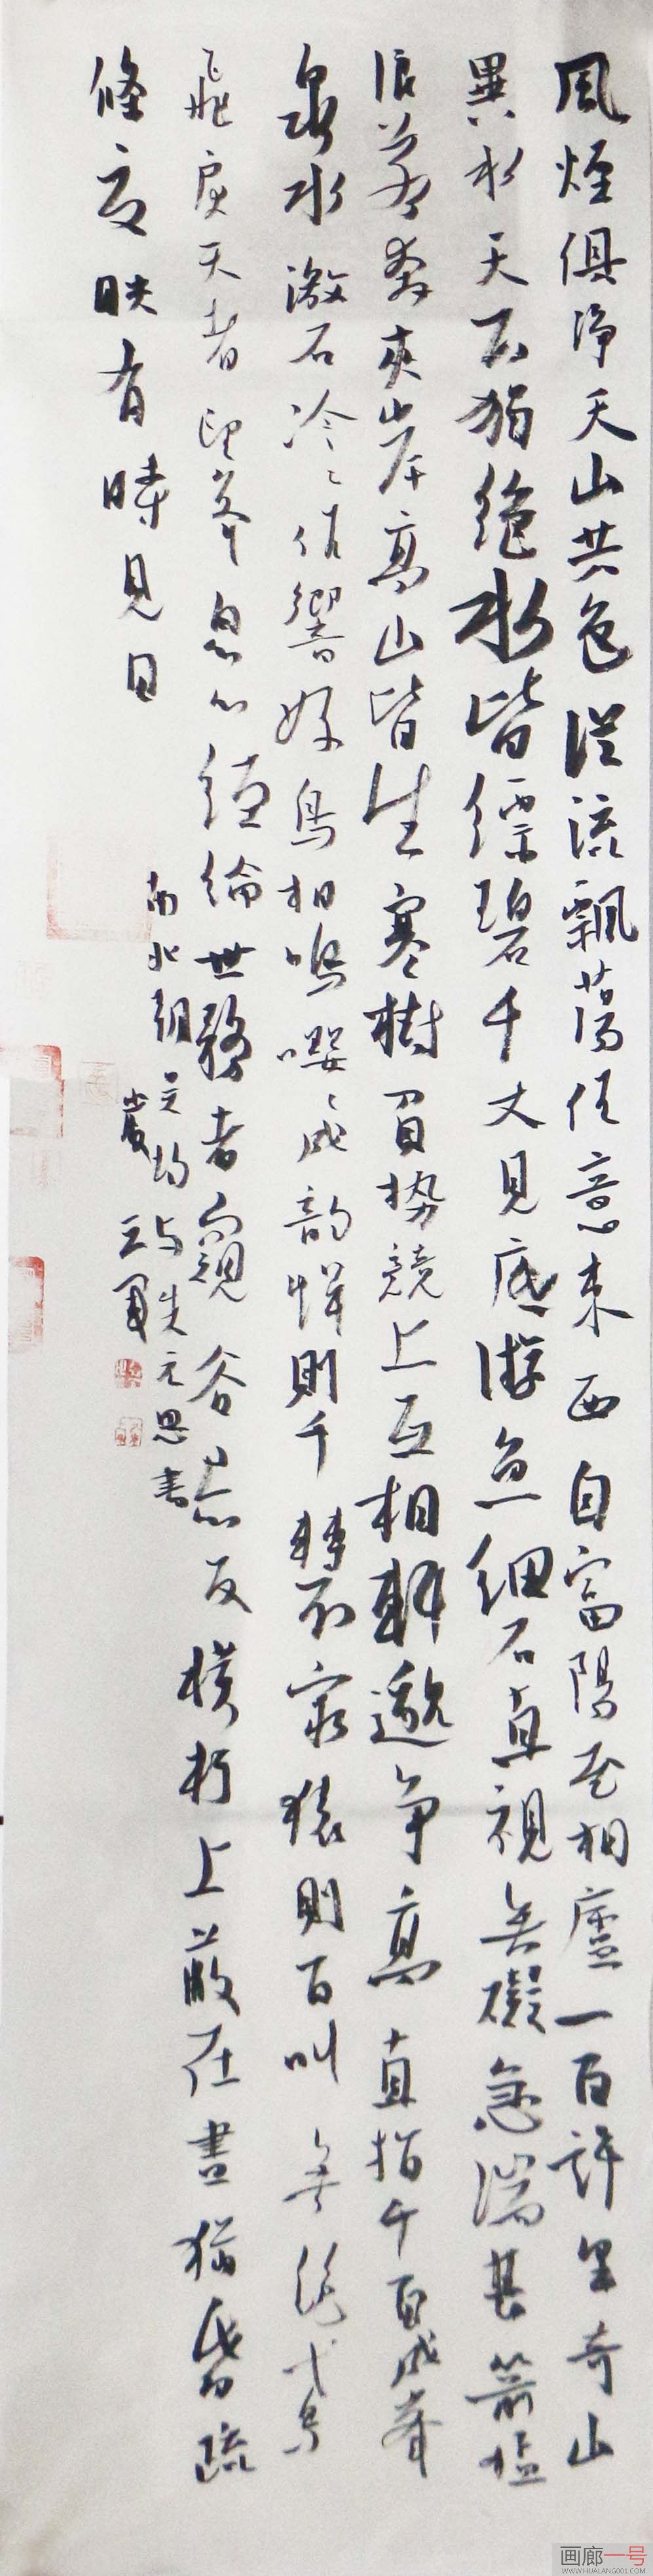 風煙俱净天山共色從流飄蕩任意東西自富陽至桐廬一百許里奇山
異水天下獨絶水皆縹碧千丈見底游魚細石直視無礙急湍甚箭猛
浪若奔夾岸高山皆生寒樹負势競上互相軒邈争高直指千百成峯
泉水激石泠〻作響好鳥相鳴嚶〻成韵蟬則千轉不窮猿則百叫無絶
鳶飛戾天者望峯息心經綸世務者窺谷忘反横柯上蔽在晝猶昏疏
條交映有時見日
南北朝吴均与朱元思書
画廊一号
WWW.HUALANG001.COM